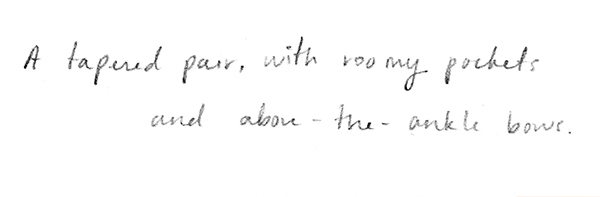 A tapered pair, with roomy pockets
and above-the-ankle bows.